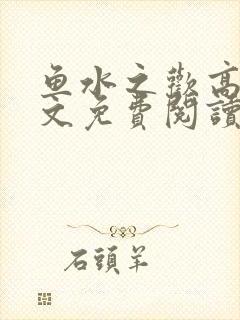 鱼水之歡高
文免費閱讀
石頭羊